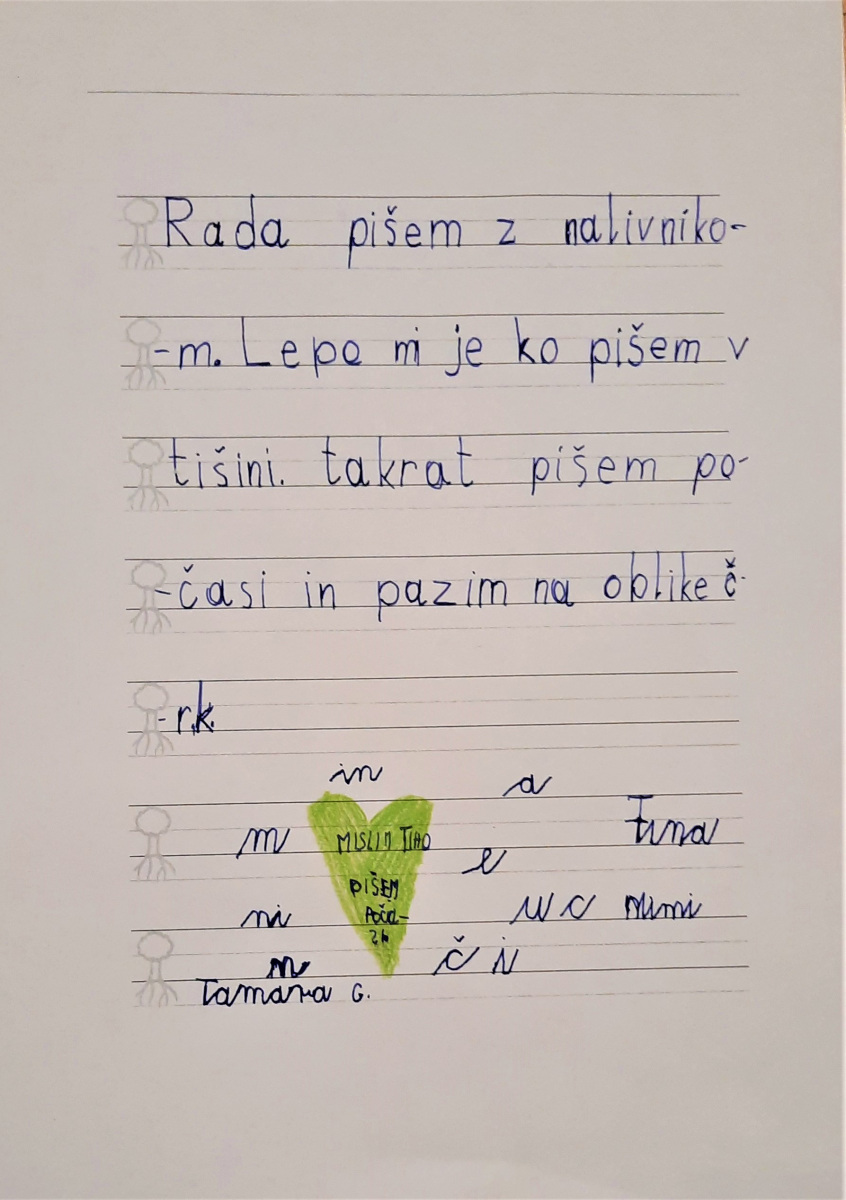 Rada pišem z nalivniko-
-m. Lepo mi je ko pišem v
tišini. takrat pišem po-
-časi in pazim na oblike č-
-rk.
in
a
m
MISLIM TIHO
Tina
e
PIŠEM
POČA-
ni
u c
mimi
n
č i
Tamara G.